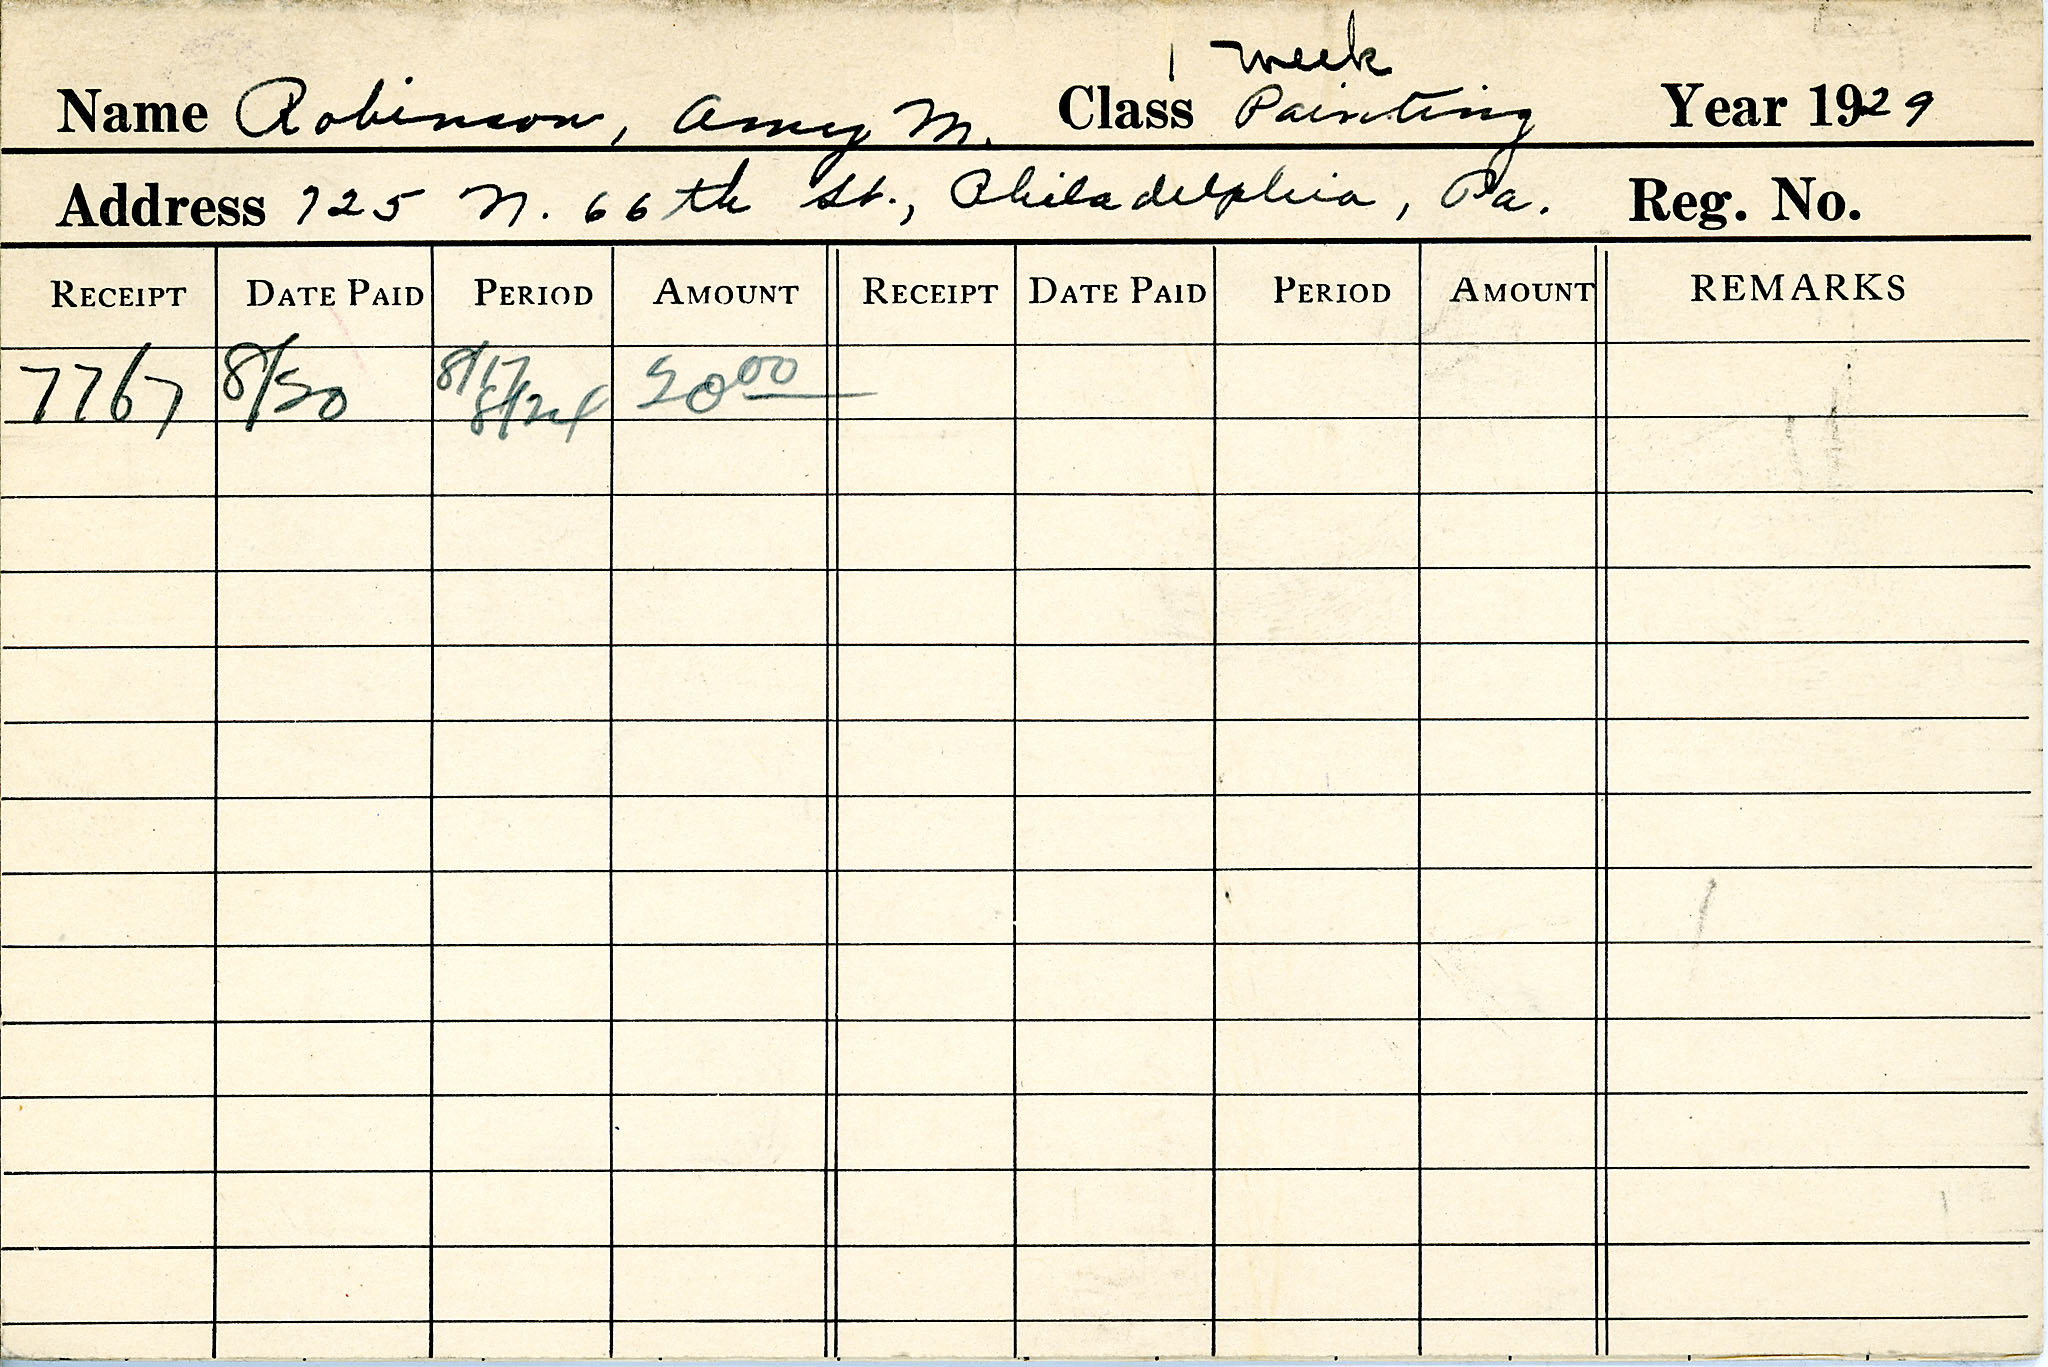 1 week
Name Robinson, Amy M. Class Painting Year 1929
Address 725 N. 66th St., Philadelphia, Pa. Reg. No.
RECEIPT DATE PAID PERIOD AMOUNT RECEIPT DATE PAID PERIOD AMOUNT REMARKS
7767 8/20 8/17 20 00
8/24